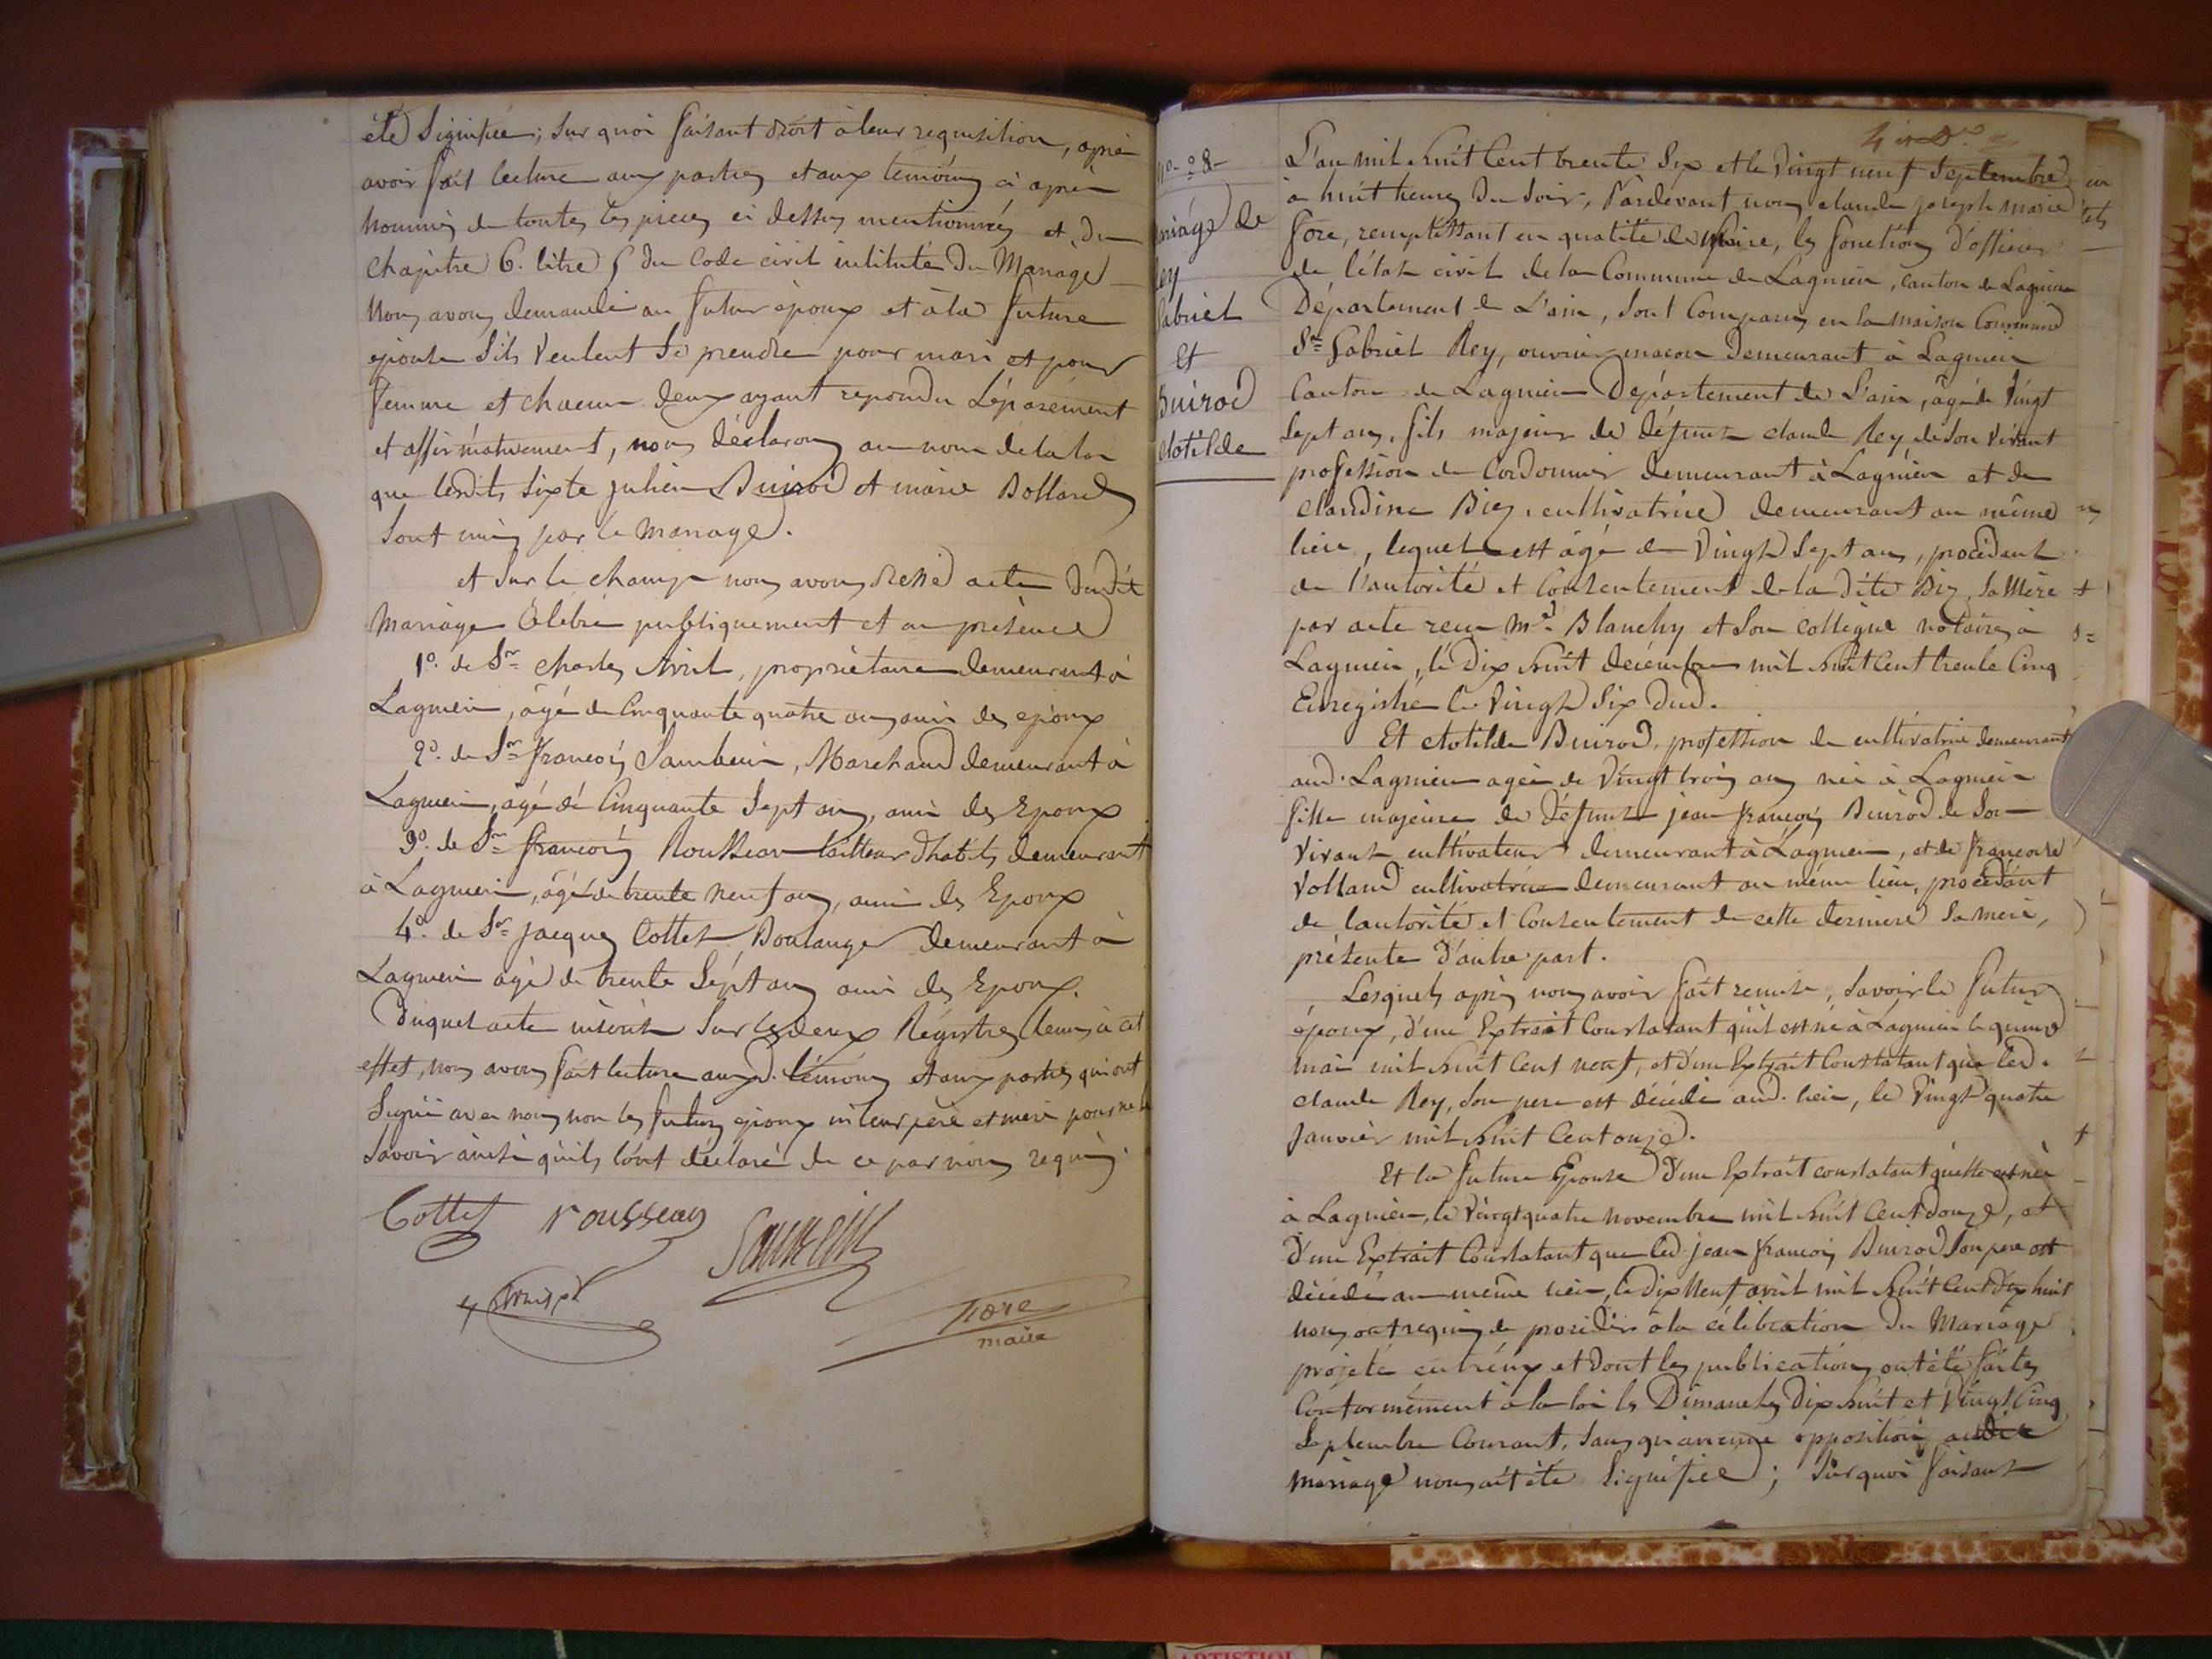 été Signifiée; sur quoi faisant droit à leur requisition, après
avoir fait lecture aux parties et aux temoins ci après
nommés de toutes les pieces ci dessus mentionnées et du
chapitre 6. titre 5 du Code civil intitulé du Mariage
Nous avons demandé au futur époux et à la future
epouse S'ils veulent Se prendre pour mari et pour
femme et chacun deux ayant repondu Séparément
et affirmativement, nous déclarons au nom de la loi
que lesdits Sixte julien Buirod et marie Bollard
Sont unis par le mariage.
et Sur le champ nous avons dressé acte dudit
Mariage Célébré publiquement et en présence
1º. de Sr charles Avril, propriétaire demeurant à
Lagnieu, âgé de Cinquante quatre ans ami des epoux
2º. de Sr françois Sambuin, Marchand demeurant à
Lagnieu, âgé de Cinquante Sept ans, ami des Epoux
3º. de Sr françois Rousseau tailleur d'habits demeurant
à Lagnieu, âgé de trente neuf ans, ami des Epoux
4º. de Sr jacques Cottet Boulanger demeurant à
Lagnieu agé de trente Sept ans ami des Epoux.
Duquel acte inscrit Sur les deux Régistres tenus à cet
effet, nous avons fait lecture auxd. témoins et aux parties qui ont
Signé avec nous non les futurs epoux ni leur père et mere pour ne
Savoir ainsi qu'ils l'ont déclaré de ce par nous requis.
Cottet rousseau
fore
maire
Nº. 28
mariage de
Rey
Gabriel
Et
Buirod
clotilde
L'an mil huit Cent trente Six et le vingt neuf Septembre
à huit heures du Soir, Pardevant nous claude joseph marie
fore, remplissant en qualité de Maire, les fonctions d'officier
de l'état civil de la Commune de Lagnieu, canton de Lagnieu
Département de L'ain, Sont Comparus en la maison Commune
Sr Gabriel Rey, ouvrier maçon Demeurant à Lagnieu
Canton de Lagnieu Département de L'ain, âgé de Vingt
Sept ans, fils majeur de défunt claude Rey de Son Vivant
profession de Cordonnier demeurant à Lagnieu et de
claudine Biez, cultivatrice demeurant au même
lieu, lequel est âgé de Vingt Sept ans, procédant
de l'autorité et Consentement de la dite Biez, Sa Mère
par acte recu Me Blanchy et Son collègue notaires à
Lagnieu, le Dix huit décembre mil huit Cent trente Cinq
Enregistré le Vingt Six dud.
Et clotilde Buirod, profession de cultivatrice demeurant
aud. Lagnieu agée de Vingt trois ans née à Lagnieu
fille majeure de Défunt jean françois Buirod de Son
Vivant cultivateur demeurant à Lagnieu, et de françoise
Volland cultivatrice demeurant au même lieu, procédant
de l'autorité et Consentement de cette derniere Sa mere,
présente d'autre part.
Lesquels après nous avoir fait remise, Savoir le futur
époux, d'un Extrait Constatant qu'il est né à Lagnieu le quinze
mai mil huit Cent neuf, et d'un Extrait Constatant que led.
claude Rey, Son pere est décédé aud. lieu, le Vingt quatre
Janvier mil huit Cent onze.
Et la future Epouse d'un Extrait constatant qu'elle est née
à Lagnieu, le Vingt quatre novembre mil huit Cent douze, et
d'un Extrait Constatant que led. jean françois Buirod Son pere est
décédé au même lieu, le dix Neuf avril mil huit Cent dix huit
nous ont requis de procéder à la célébration du Mariage
projeté entr'eux et dont les publications ont été faites
Conformément à la loi les Dimanches Dix huit et Vingt Cinq
Septembre Courant, Sans qu'aucune opposition audit
mariage nous ait été Signifiée; Sur quoi faisant